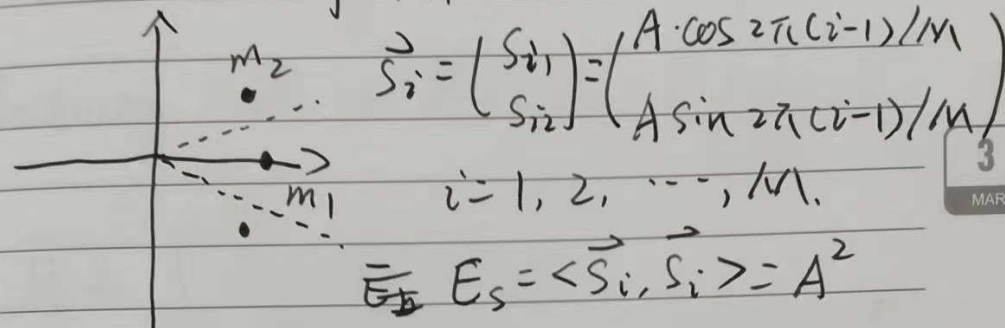 m₂
\vec{S_i} = \begin{pmatrix} S_{i1} \\ S_{i2} \end{pmatrix} = \begin{pmatrix} A \cdot \cos 2\pi(i-1)/M \\ A \sin 2\pi(i-1)/M \end{pmatrix}
m₁
i = 1, 2, ..., M.
3
MAR
E_s = <\vec{S_i}, \vec{S_i}> = A^2